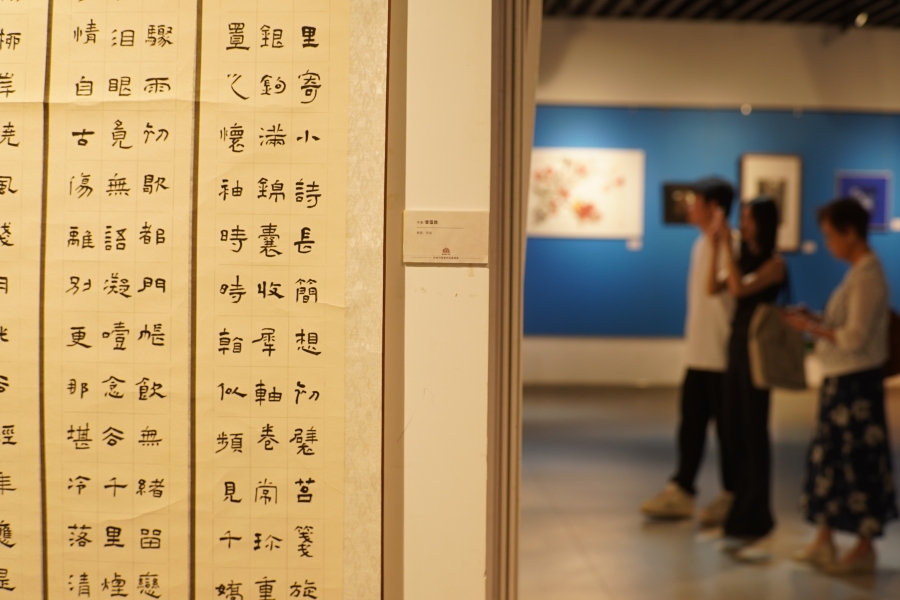 里寄小詩長簡想初襞苔箋旋
銀鉤滿錦囊收犀軸卷常珍重
置之懷袖時時看似頻見千嬌
驟雨初歇都門帳飲無緒留戀
泪眼竟無語凝噎念去千里煙
情自古傷離別更那堪冷落清